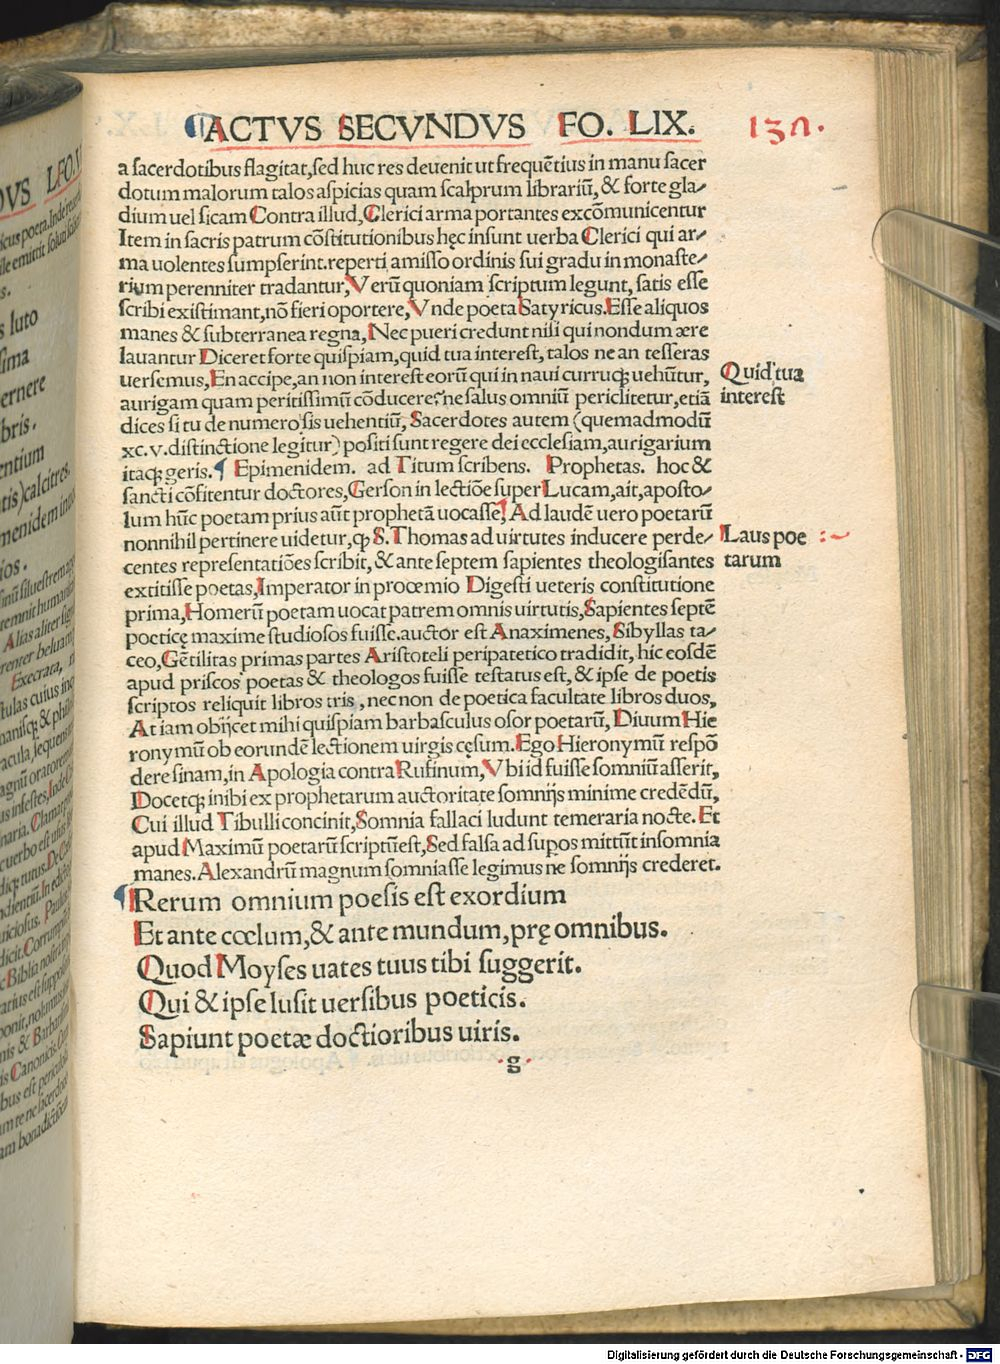 ¶ACTVS SECVNDVS FO. LIX.
130.
a sacerdotibus flagitat,sed huc res deuenit ut frequẽtius in manu sacer
dotum malorum talos aspicias quam scalprum librariũ, & forte gla/
dium uel sicam Contra illud,Clerici arma portantes excõmunicentur
Item in sacris patrum cõstitutionibus hęc insunt uerba Clerici qui ar/
ma uolentes sumpserint.reperti amisso ordinis sui gradu in monaste/
rium perenniter tradantur,Verũ quoniam scriptum legunt, satis esse
scribi existimant,nõ fieri oportere,Vnde poeta Satyricus.Esse aliquos
manes & subterranea regna,Nec pueri credunt nisi qui nondum ære
lauantur Diceret forte quispiam,quid tua interest, talos ne an tesseras
uersemus,En accipe,an non interest eorũ qui in naui curruqꝫ uehũtur,
aurigam quam peritissimũ cõducere,ne salus omniũ periclitetur,etiã
dices si tu de numero sis uehentiũ, Sacerdotes autem (quemadmodũ
xc.v.distinctione legitur) positi sunt regere dei ecclesiam,aurigarium
itaqꝫ geris.¶ Epimenidem. ad Titum scribens. Prophetas. hoc &
sancti cõfitentur doctores,Gerson in lectiõe super Lucam,ait,aposto/
lum hũc poetam prius aũt prophetã uocasse, Ad laudẽ uero poetarũ
nonnihil pertinere uidetur,ꝙ S.Thomas ad uirtutes inducere perde/
centes representatiões scribit, & ante septem sapientes theologisantes
extitisse poetas,Imperator in proœmio Digesti ueteris constitutione
prima,Homerũ poetam uocat patrem omnis uirtutis,Sapientes septẽ
poeticę maxime studiosos fuisse.auctor est Anaximenes,Sibyllas ta/
ceo,Gẽtilitas primas partes Aristoteli peripatetico tradidit, hic eosdẽ
apud priscos poetas & theologos fuisse testatus est, & ipse de poetis
scriptos reliquit libros tris, nec non de poetica facultate libros duos,
At iam obijcet mihi quispiam barbasculus osor poetarũ, Diuum Hie
ronymũ ob eorundẽ lectionem uirgis cęsum.Ego Hieronymũ respõ
dere sinam,in Apologia contra Rufinum,Vbi id fuisse somniũ asserit,
Docetqꝫ inibi ex prophetarum auctoritate somnijs minime credẽdũ,
Cui illud Tibulli concinit,Somnia fallaci ludunt temeraria nocte. Et
apud Maximũ poetarũ scriptũ est, Sed falsa ad supos mittũt insomnia
manes.Alexandrũ magnum somniasse legimus ne somnijs crederet.
¶Rerum omnium poesis est exordium
Et ante cœlum,& ante mundum,prę omnibus.
Quod Moyses uates tuus tibi suggerit.
Qui & ipse lusit uersibus poeticis.
Sapiunt poetæ doctioribus uiris.
·g·
Quid tua
interest
Laus poe
tarum
Digitalisierung gefördert durch die Deutsche Forschungsgemeinschaft - DFG